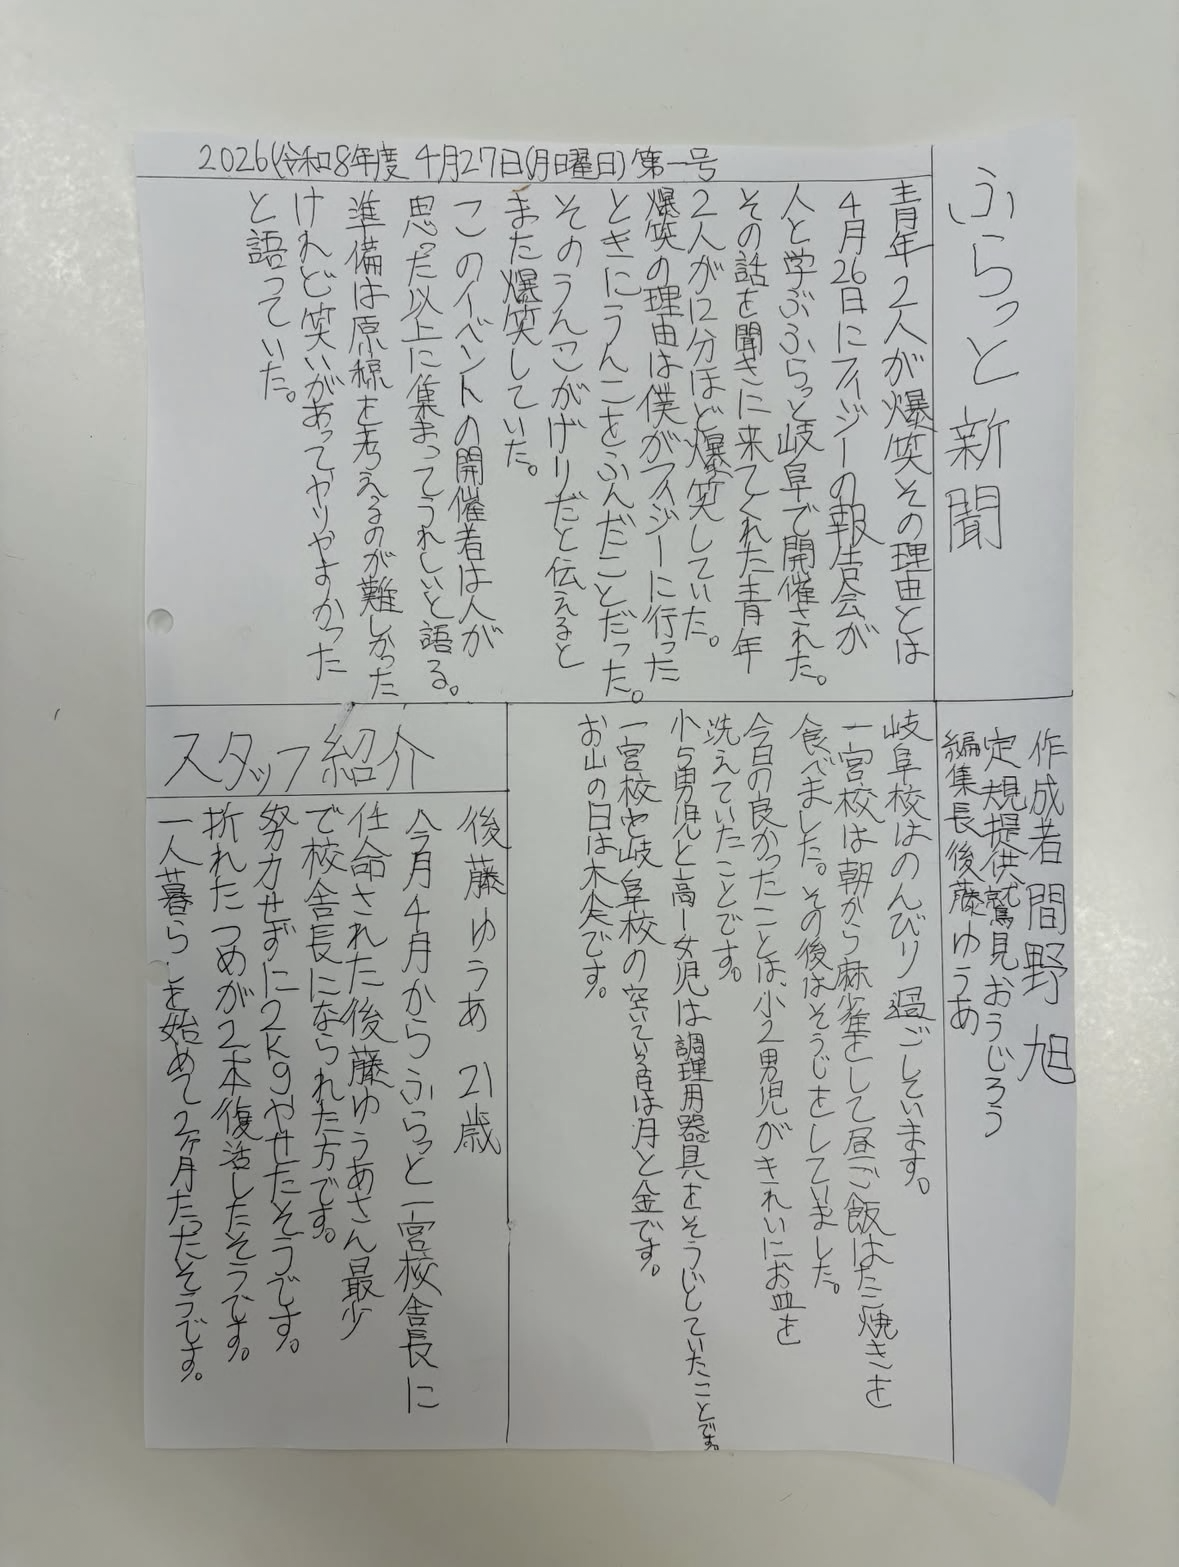 ふらっと新聞
2026(令和8年度 4月27日(月曜日)第一号
作成者間野旭
定規提供鷲見おうじろう
編集長後藤ゆうあ
青年2人が爆笑その理由とは
4月26日にフィジーの報告会が
人と学ぶふらっと岐阜で開催された。
その話を聞きに来てくれた青年
2人が12分ほど爆笑していた。
爆笑の理由は僕がフィジーに行った
ときにうんこをふんだことだった。
そのうんこがげりだと伝えると
また爆笑していた。
このイベントの開催者は人が
思った以上に集まってうれしいと語る。
準備は原稿を考えるのが難しかった
けれど笑いがあってやりやすかった
と語っていた。
岐阜校はのんびり過ごしています。
一宮校は朝から麻雀をして昼ご飯はたこ焼きを
食べました。その後はそうじをしていました。
今日の良かったことは、小2男児がきれいにお皿を
洗えていたことです。
小5男児と高一女児は調理用器具をそうじしていたことです。
一宮校と岐阜校の空いている日は月と金です。
お山の日は木火です。
スタッフ紹介
後藤ゆうあ 21歳
今月4月からふらっと一宮校舎長に
任命された後藤ゆうあさん最少
で校舎長になられた方です。
努力せずに2kgやせたそうです。
折れたつめが2本復活したそうです。
一人暮らしを始めて2ヶ月たったそうです。